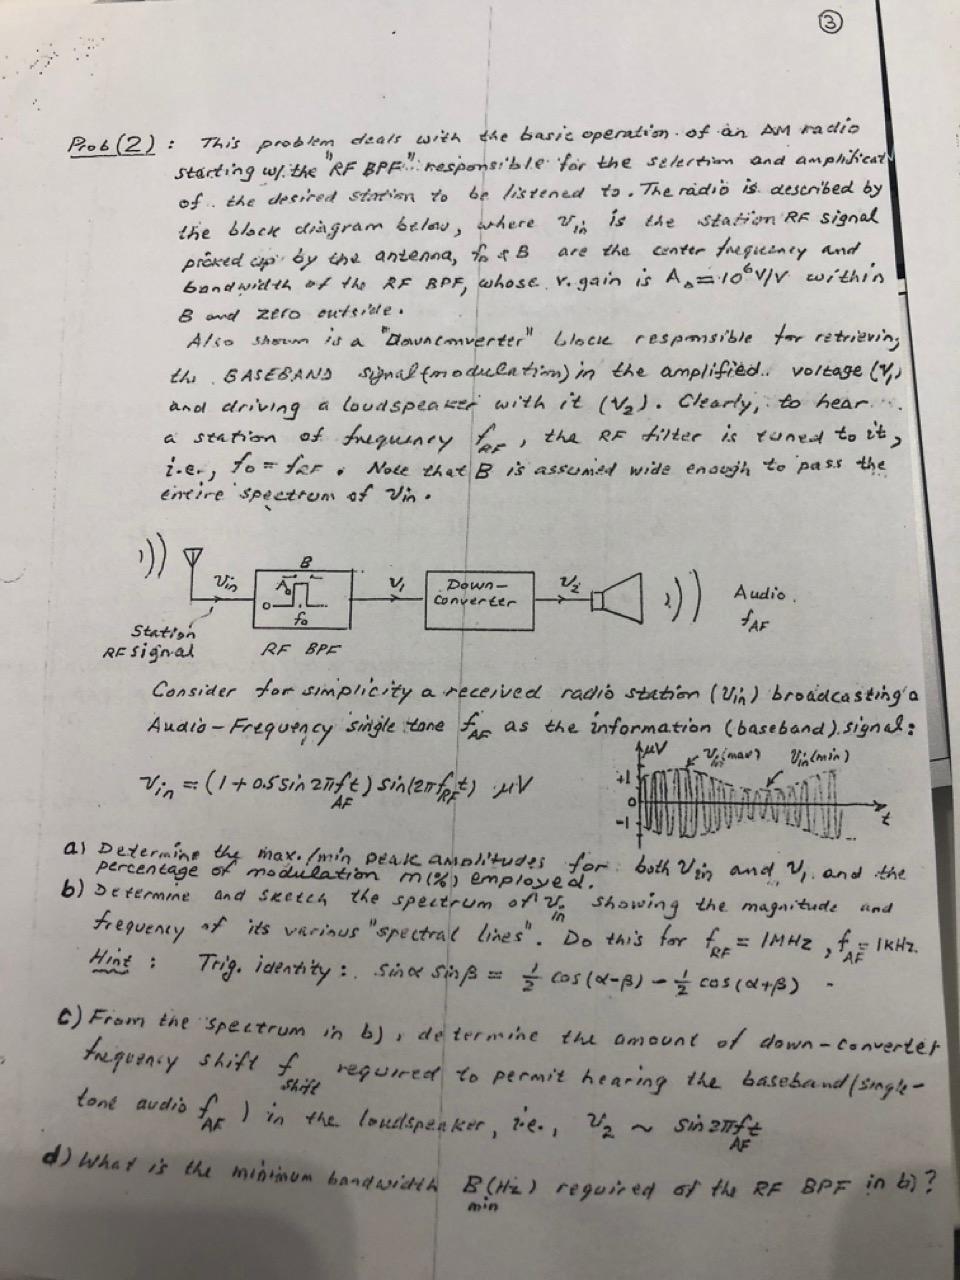 3
Prob(2) : This problem deals with the basic operation of an AM radio
starting w/. the "RF BPF" responsible for the selection and amplificat
of the desired station to be listened to. The radio is described by
the block diagram below, where Vin is the station RF signal
picked up by the antenna, fo & B are the center frequency and
bandwidth of the RF BPF, whose v. gain is Ao = 10⁶ V/V within
B and zero outside.
Also shown is a "Downconverter" block responsible for retrieving
the BASEBAND signal (modulation) in the amplified voltage (V₁)
and driving a loudspeaker with it (V₂). Clearly, to hear
a station of frequency fRF, the RF filter is tuned to it,
i.e., fo = fRF. Note that B is assumed wide enough to pass the
entire spectrum of Vin.
Vin B Ao 0 fo V₁ Down-
Converter V₂ Audio
fAF
Station
RF signal RF BPF
Consider for simplicity a received radio station (Vin) broadcasting a
Audio-Frequency single tone fAF as the information (baseband) signal:
μV Vin(max) Vin(min)
+1
0
-1
t
Vin = (1 + 0.5 sin 2πfAFt) sin(2πfRFt) μV
a) Determine the max./min peak amplitudes for both Vin and V₁ and the
percentage of modulation m(%) employed.
b) Determine and sketch the spectrum of Vin showing the magnitude and
frequency of its various "spectral lines". Do this for fRF = 1MHz, fAF = 1KHz.
Hint : Trig. identity : sinα sinβ = ½ cos(α-β) - ½ cos(α+β)
c) From the spectrum in b), determine the amount of down-converter
frequency shift fshift required to permit hearing the baseband (single-
tone audio fAF) in the loudspeaker, i.e., V₂ ~ sin 2πfAFt
d) What is the minimum bandwidth Bmin(Hz) required of the RF BPF in b)?